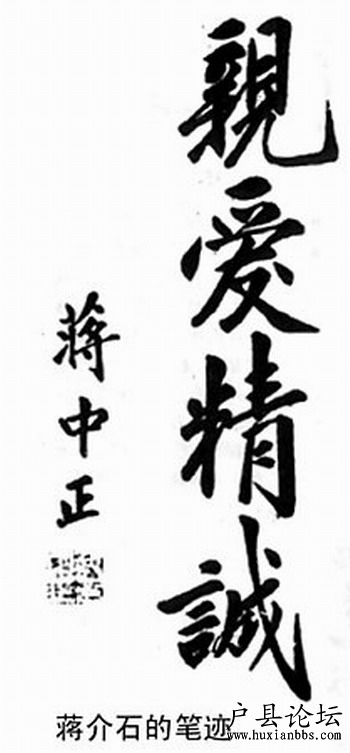 親愛精誠
蒋中正
蒋介石的笔迹
户县论坛
www.huxianbbs.com